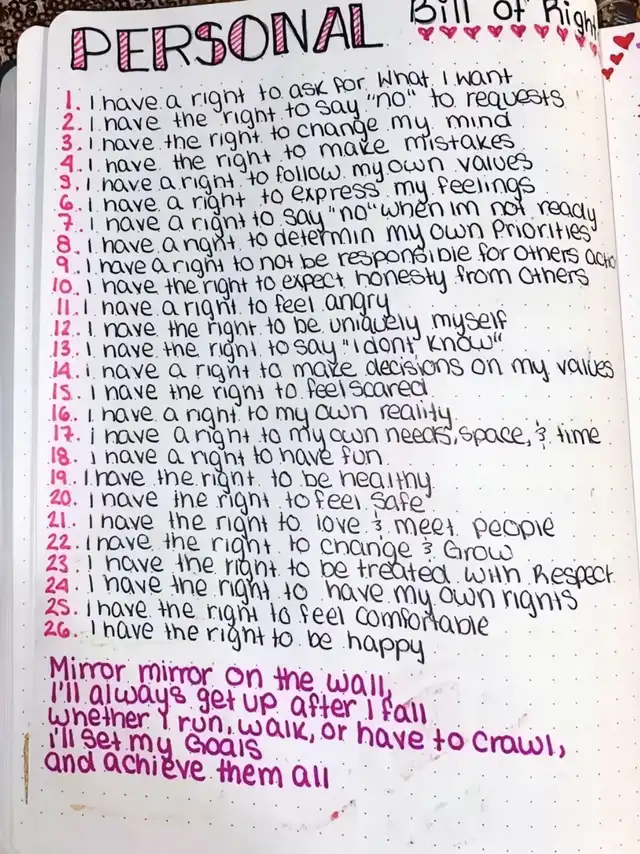 PERSONAL Bill Of Right
1. I have a right to ask for what I want
2. I have the right to say "no" to requests
3. I have the right to change my mind
4. I have the right to make mistakes
5. I have a right to follow my own values
6. I have a right to express my feelings
7. I have a right to say "no" when im not ready
8. I have a right to determin my own Priorities
9. I have a right to not be responsible for others actio
10. I have the right to expect honesty from others
11. I have a right to feel angry
12. I have the right to be uniquely myself
13. I have the right to say "I dont know"
14. i have a right to make decisions on my values
15. I have the right to feel scared
16. I have a right to my own reality
17. i have a right to my own needs, space, & time
18. I have a right to have fun
19. I have the right to be healthy
20. I have the right to feel safe
21. I have the right to love & meet people
22. I have the right to change & Grow
23. I have the right to be treated with Respect
24. I have the right to have my own rights
25. I have the right to feel comfortable
26. I have the right to be happy
Mirror mirror on the wall,
I'll always get up after I fall
whether I run, walk, or have to crawl,
i'll set my Goals
and achieve them all